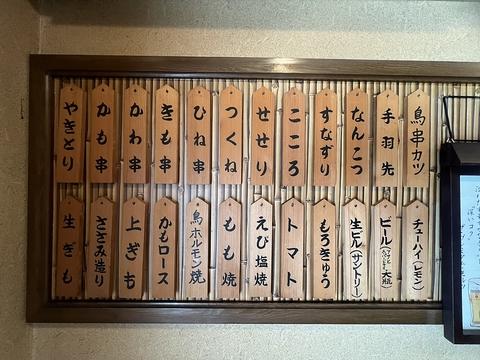 鳥串カツ
手羽先
なんこつ
すなずり
こころ
せせり
つくね
ひね串
きも串
かわ串
かも串
やきとり
チューハイ(レモン)
ビール
大瓶
生ビル(サントリー)
もろきゅう
トマト
えび塩焼
もも焼
鳥ホルモン焼
かもロース
上ぎも
ささみ造り
生ぎも